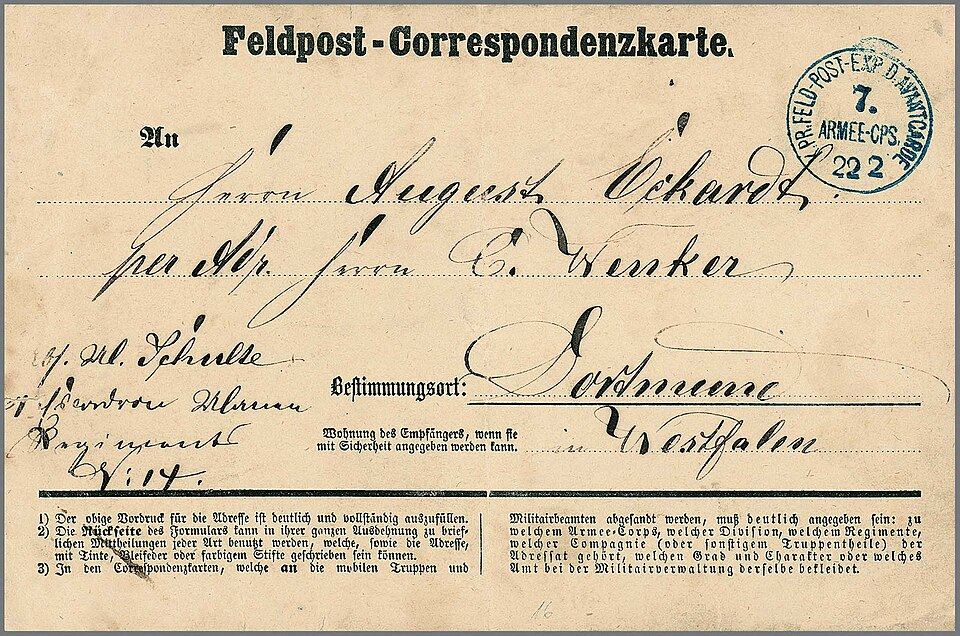 Feldpost-Correspondenzkarte.
K.PR.FELD-POST-EXP.D.AVANTGARDE
7.
ARMEE-CPS.
22 2
An
Herrn August Eckardt
per Adr. Herrn C. Wenker
Ul. Schulte
Escadron Ulanen
Regiments
N: 14.
Bestimmungsort: Dortmund
Wohnung des Empfängers, wenn sie
mit Sicherheit angegeben werden kann.
in Westfalen
1) Der obige Vordruck für die Adresse ist deutlich und vollständig auszufüllen.
2) Die Rückseite des Formulars kann in ihrer ganzen Ausdehnung zu brief-
lichen Mittheilungen jeder Art benutzt werden, welche, sowie die Adresse,
mit Tinte, Bleifeder oder farbigem Stifte geschrieben sein können.
3) In den Correspondenzkarten, welche an die mobilen Truppen und
Militairbeamten abgesandt werden, muß deutlich angegeben sein: zu
welchem Armee-Corps, welcher Division, welchem Regimente,
welcher Compagnie (oder sonstigem Truppentheile) der
Adressat gehört, welchen Grad und Charakter oder welches
Amt bei der Militairverwaltung derselbe bekleidet.
16